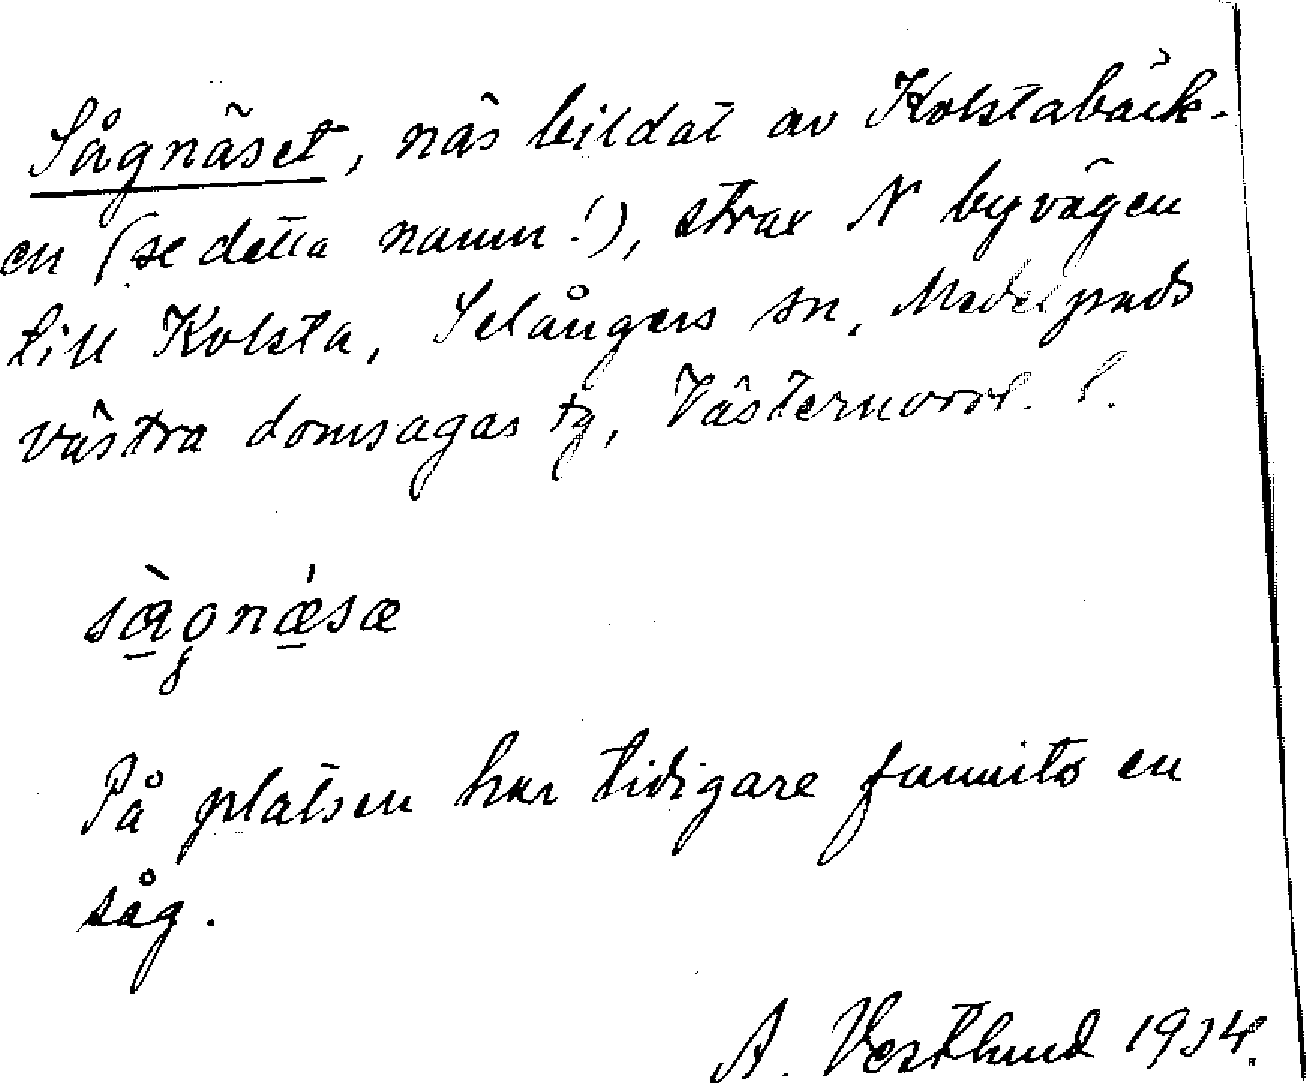 Sågnäset, näs bildat av Kolstabäck-
en (se detta namn!), strax N byvägen
till Kolsta, Selångers sn, Medelpads
västra domsagas tg, Västernorrl. l.
På platsen har tidigare funnits en
såg.
A. Vestlund 1934.